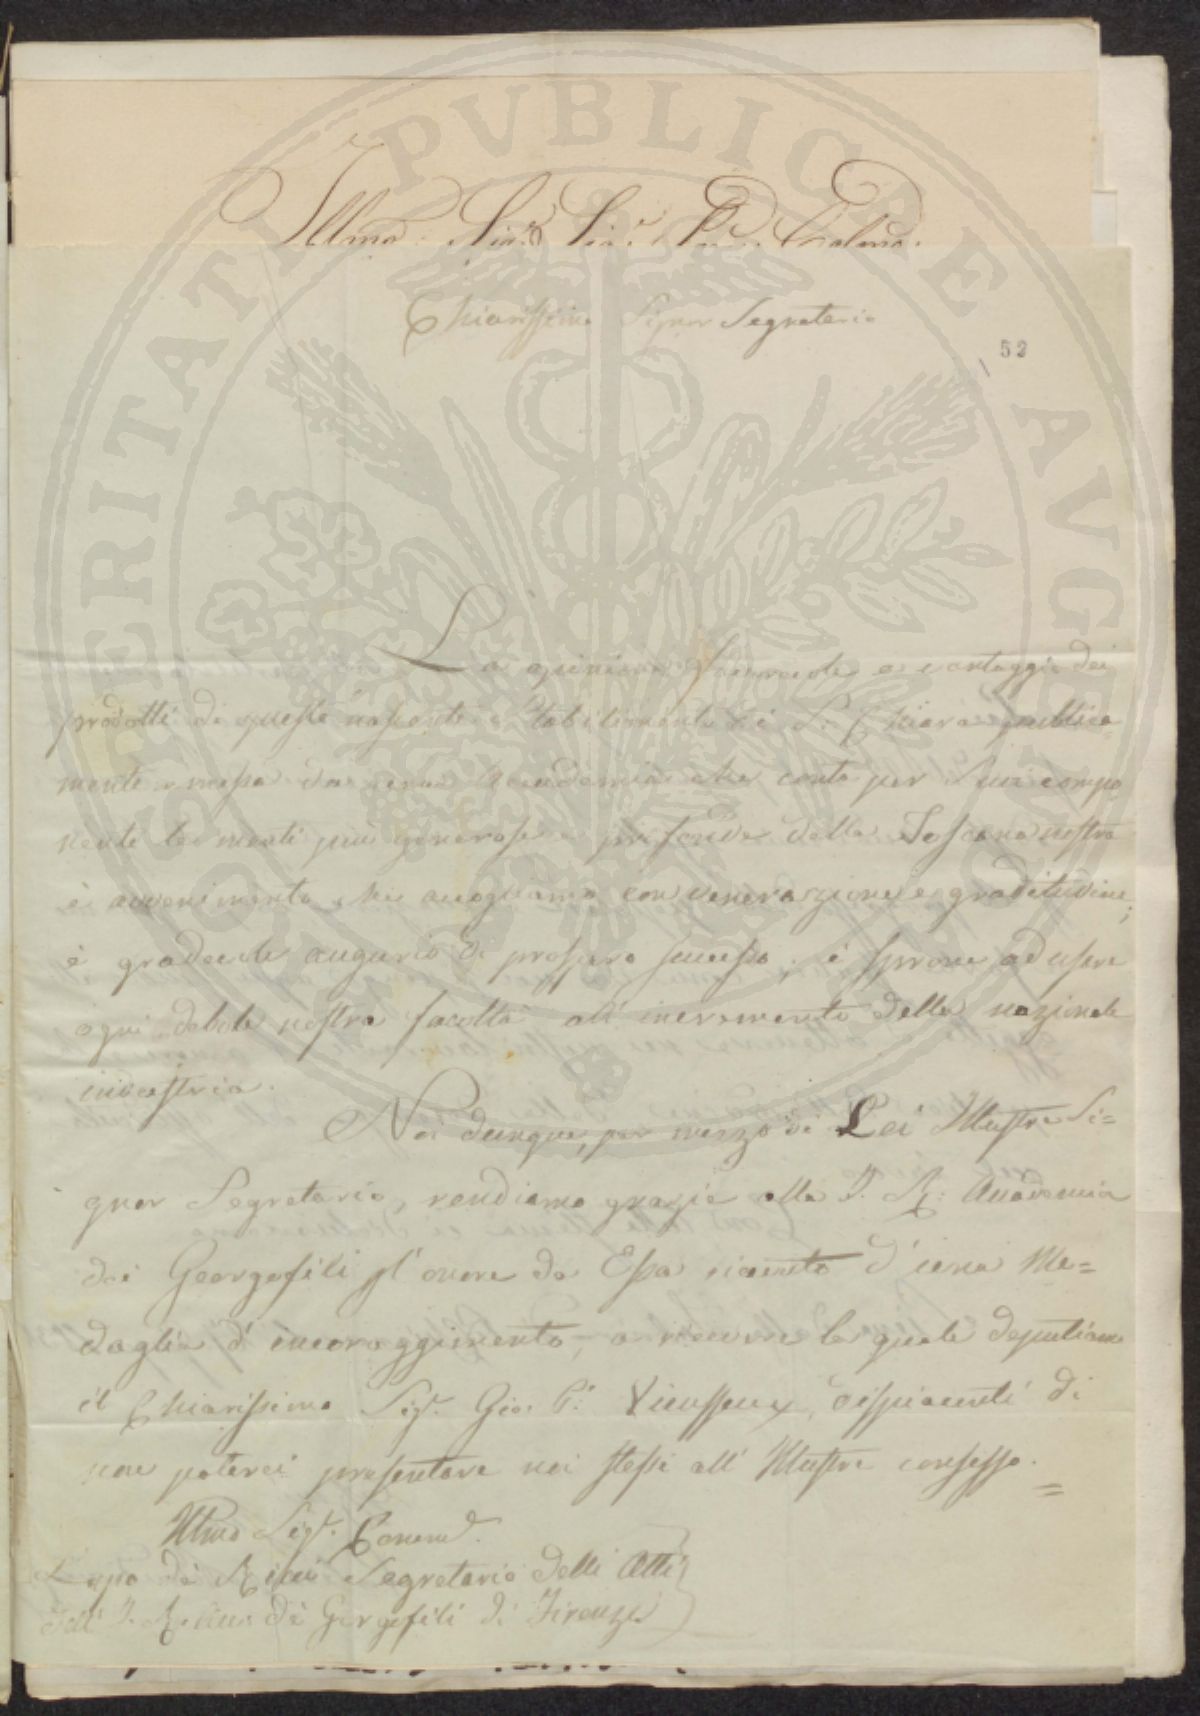 PROSPERITATI PVBLICAE AVGENDAE
Illmo: Sig.
Chiarissimo Signor Segretario
52
La opinione favorevole a vantaggio dei
prodotti di questo nascente stabilimento di S. Chiara publica=
mente emessa da una Accademia che conta per Suoi compo
nenti le menti più generose e profonde della Toscana nostra
è avvenimento che accogliamo con venerazione e gratitudine;
è gradevole augurio di prospero successo; è sprone ad usare
ogni debole nostra facoltà all' incremento della nazionale
industria.
Noi dunque, per mezzo di Lei Illustre Si=
gnor Segretario, rendiamo grazie alla I. R: Accademia
dei Georgofili pl' onore da Essa ricevuto d' una Me=
daglia d' incoraggimento, a ricevere la quale deputiamo
il Chiarissimo Sigr. Gio. P. Vieusseux, dispiacenti di
non poterci presentare noi stessi all' Illustre consesso. =
Illmo Sigr. Cavre.
Lapo de Ricci Segretario delli Atti
dell' I. R. Acc. dei Gergofili di Firenze